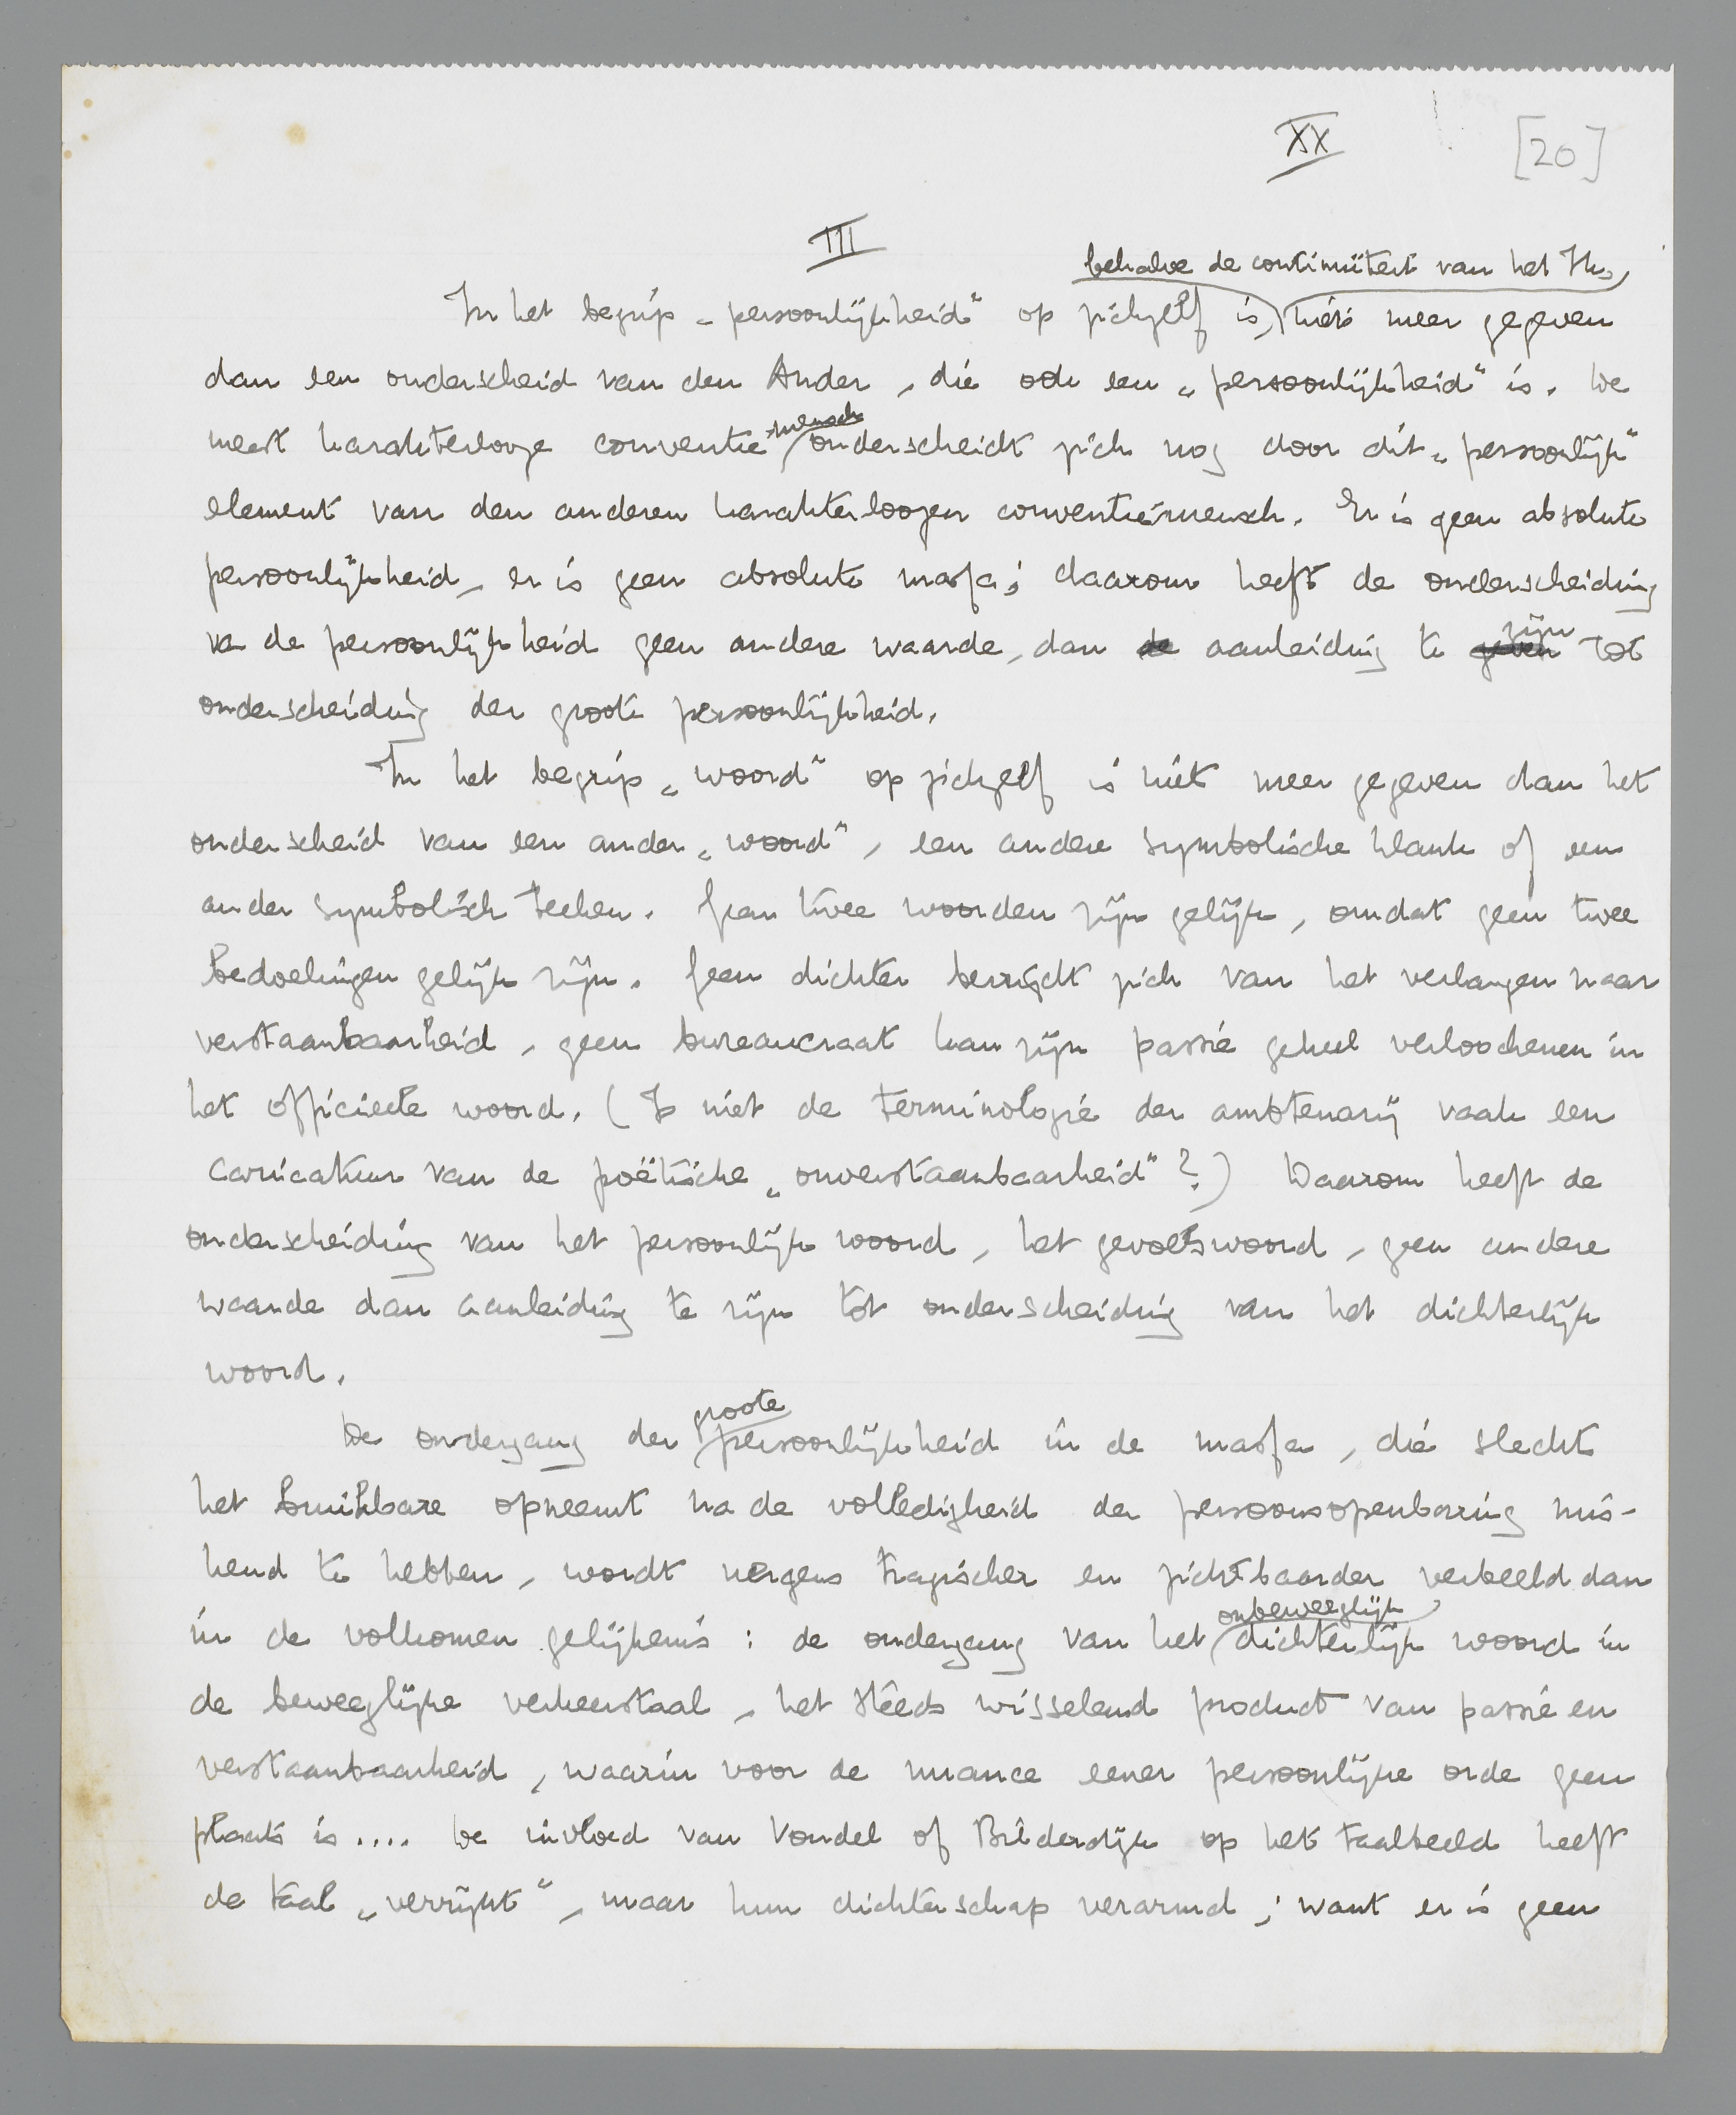 XX
[20]
III
behalve de continuïteit van het Ik,
In het begrip „persoonlijkheid" op zichzelf is, niets meer gegeven
dan een onderscheid van den Ander, die ook een „persoonlijkheid" is. De
meest karakterlooze conventie-mensch onderscheidt zich nog door dit „persoonlijk"
element van den anderen karakterloozen conventie-mensch. Er is geen absolute
persoonlijkheid, er is geen absolute massa; daarom heeft de onderscheiding
va de persoonlijkheid geen andere waarde, dan de aanleiding te geven zijn tot
onderscheiding der groote persoonlijkheid.
In het begrip „woord" op zichzelf is niet meer gegeven dan het
onderscheid van een ander „woord", een andere symbolische klank of een
ander symbolisch teeken. Geen twee woorden zijn gelijk, omdat geen twee
bedoelingen gelijk zijn. Geen dichter bevrijdt zich van het verlangen naar
verstaanbaarheid, geen bureaucraat kan zijn passie geheel verloochenen in
het officieele woord. (Is niet de terminologie der ambtenarij vaak een
caricatuur van de poëtische „onverstaanbaarheid"?) Daarom heeft de
onderscheiding van het persoonlijk woord, het gevoelswoord, geen andere
waarde dan aanleiding te zijn tot onderscheiding van het dichterlijk
woord.
De ondergang der groote persoonlijkheid in de massa, die slechts
het bruikbare opneemt na de volledigheid der persoonsopenbaring mis-
kend te hebben, wordt nergens tragischer en zichtbaarder verbeeld dan
in de volkomen gelijkenis: de ondergang van het onbeweeglijk dichterlijk woord in
de beweeglijke verkeerstaal, het steeds wisselend product van passie en
verstaanbaarheid, waarin voor de nuance eener persoonlijke orde geen
plaats is.... De invloed van Vondel of Bilderdijk op het taalbeeld heeft
de taal „verrijkt", maar hun dichterschap verarmd; want er is geen